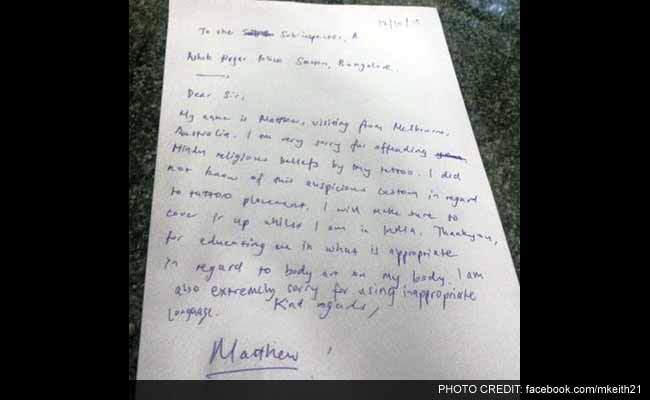 To the Sub-inspector, A
Ashok Nagar Police Station, Bangalore.
Dear Sir,
My name is Matthew, visiting from Melbourne,
Australia. I am very sorry for offending
Hindu religious beliefs by my tattoo. I did
not know of this auspicious custom in regard
to tattoo placement. I will make sure to
cover it up whilst I am in India. Thankyou,
for educating me in what is appropriate
in regard to body art on my body. I am
also extremely sorry for using inappropriate
language. Kind regards,
Matthew
PHOTO CREDIT: facebook.com/mkeith21